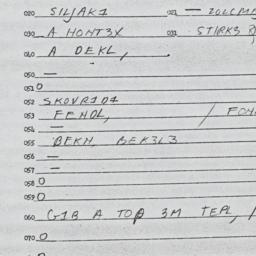 020 SILJAK1 021 —
030 A HONT3X 031 STIRK3
040 A DEKL,
050 —
051 O
052 SKOVR101
053 FENDL, /
054 —
055 BFKH, BEK3L3
056 —
057 —
058 O
059 O
060 G1B A TOP 3M TEPL, /
070 O